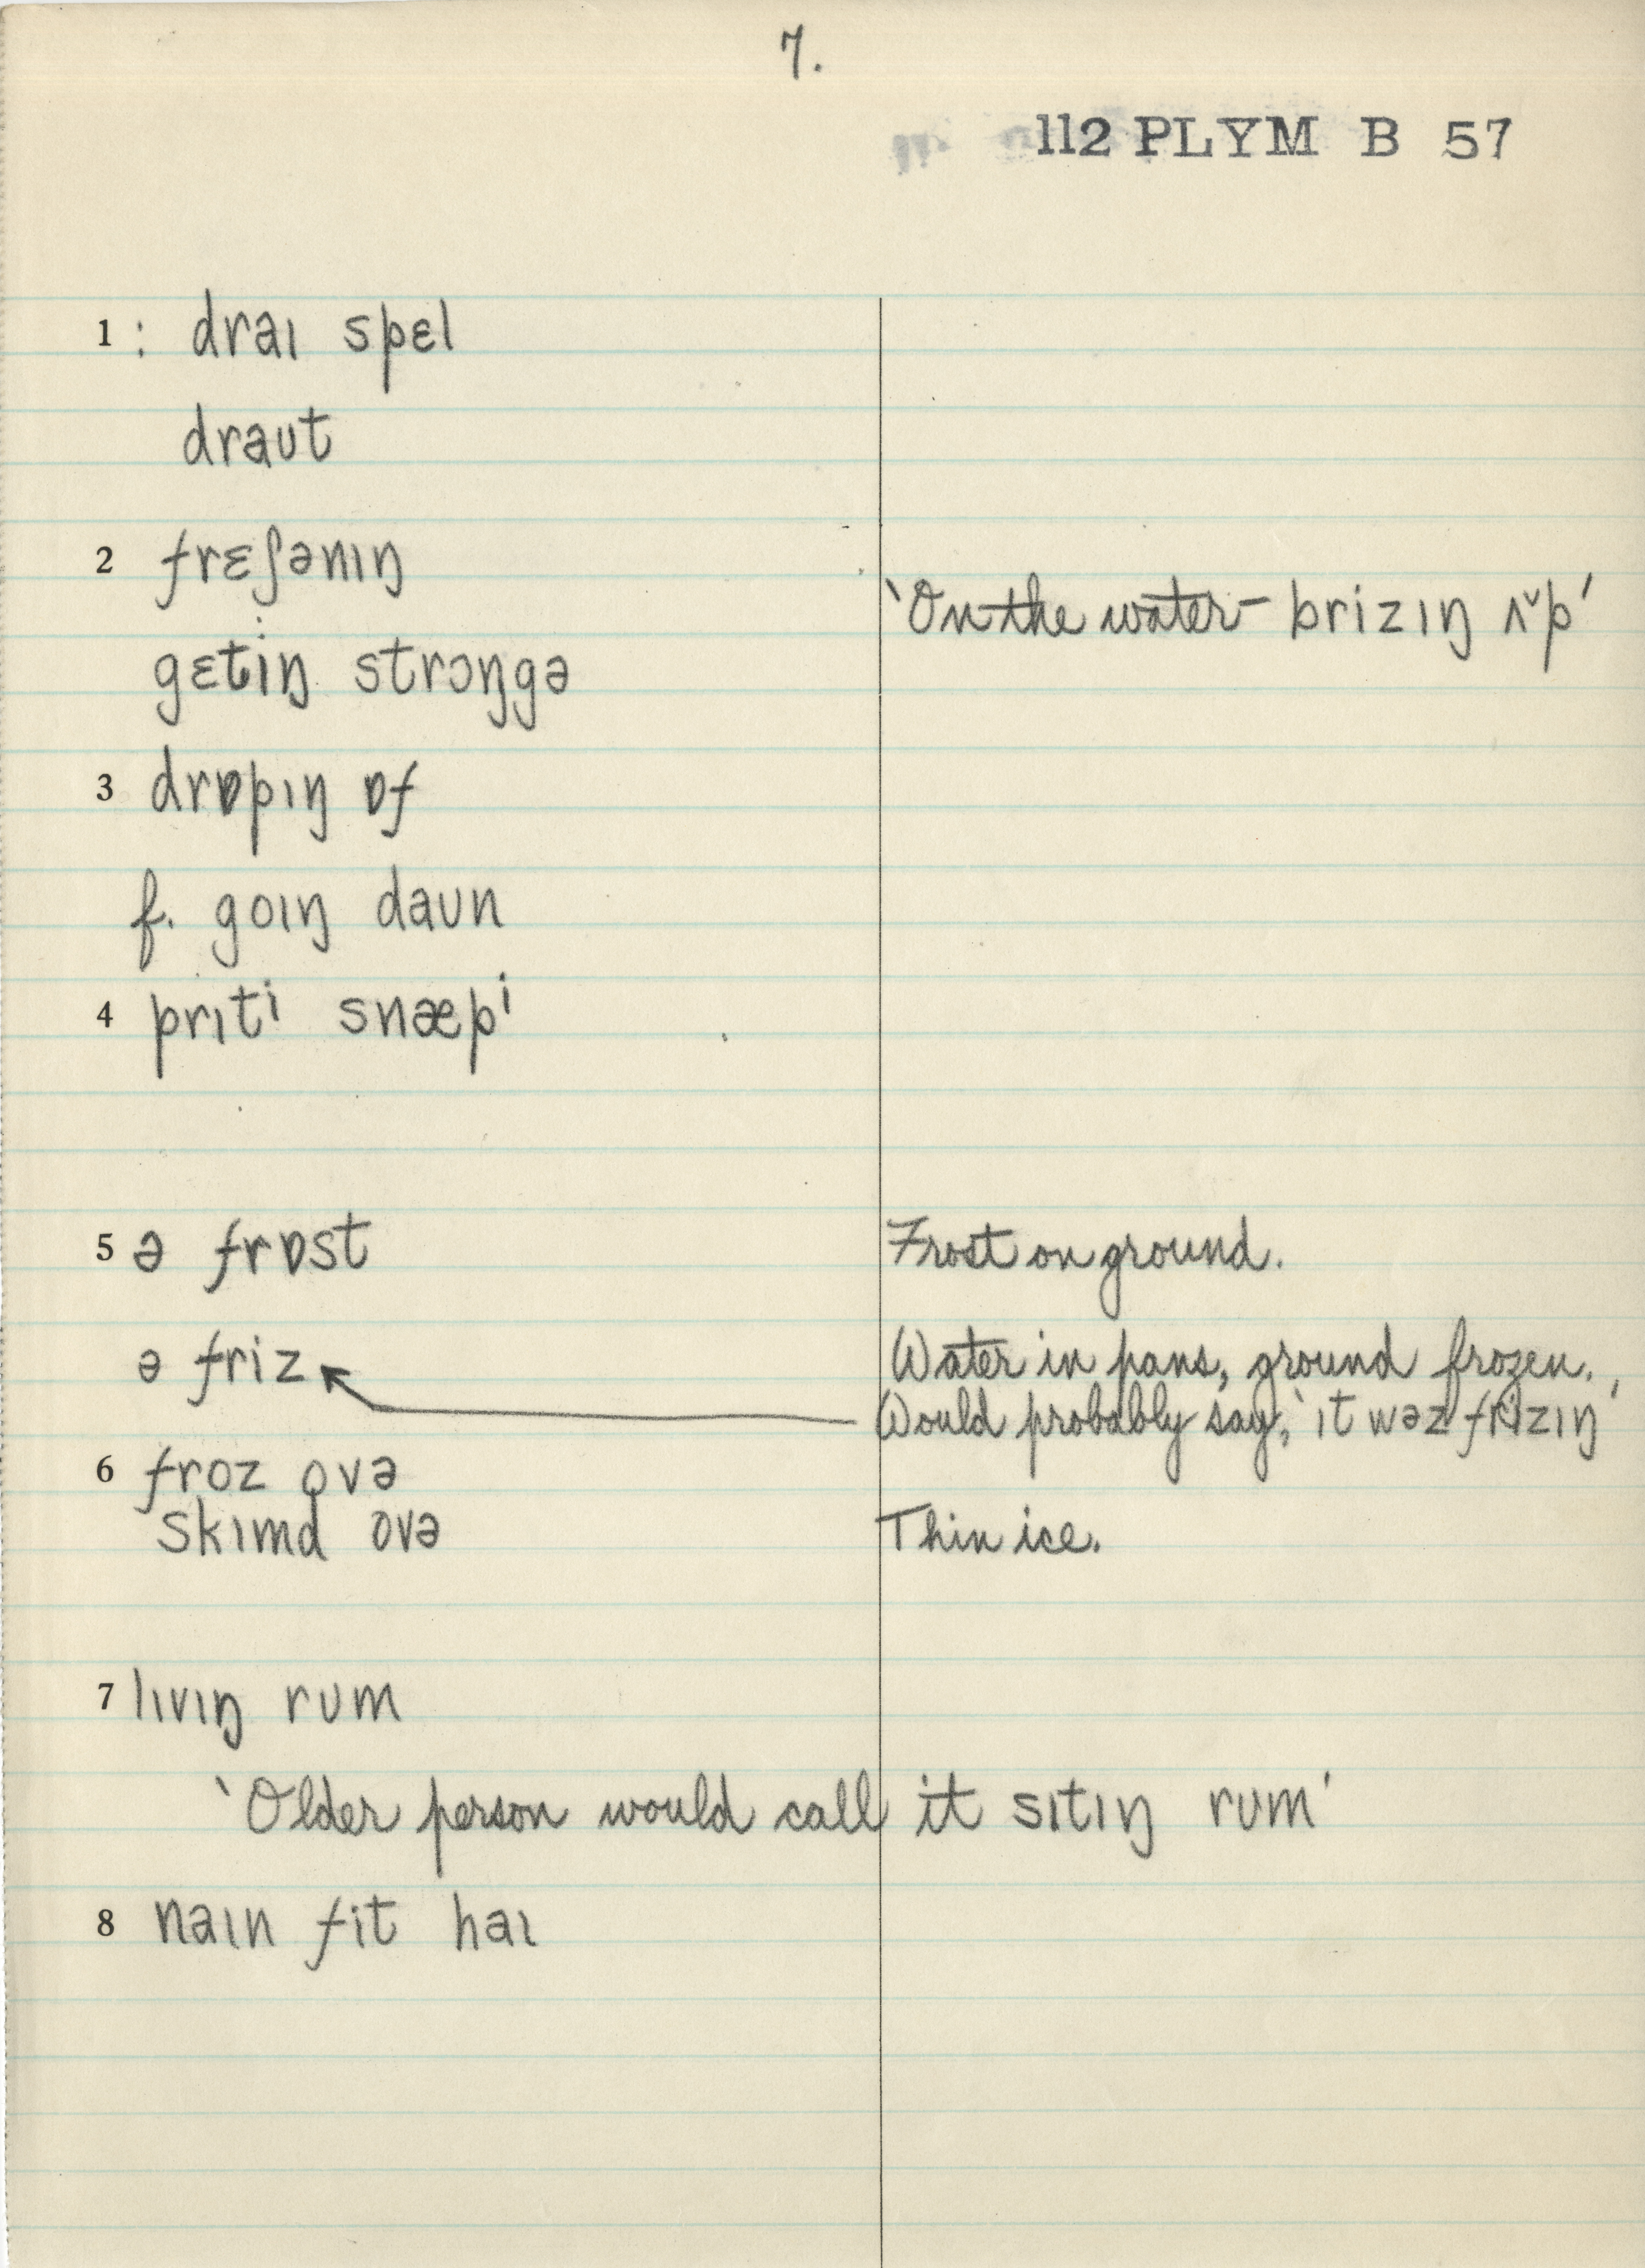 7.
112 PLYM B 57
1 : draɪ spɛl
draʊt
2 frɛʃənɪŋ
'On the water – brizɪŋ ʌ˅p'
gɛtiŋ strɔŋgə
3 drɒpɪŋ ɒf
f. goɪŋ daʊn
4 prɪtⁱ snæpⁱ
5 ə frɒst Frost on ground.
ə friz Water in pans, ground frozen.
Would probably say, 'ɪt wəz frizɪŋ'
6 froz ovə
skɪmd ovə Thin ice.
7 lɪvɪŋ rʊm
'Older person would call it sɪtɪŋ rʊm'
8 naɪn fit haɪ